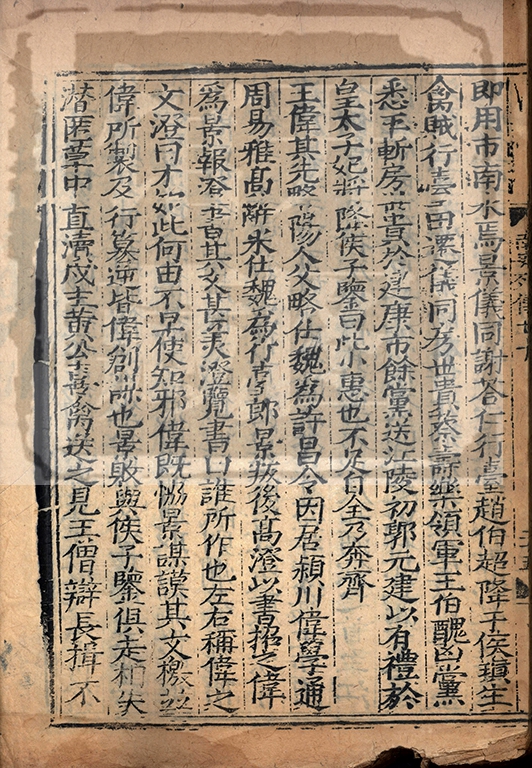 即用市南水焉景儀同謝答仁行臺趙伯超降于侯瑱生
禽賊行臺田遷儀同房世貴蔡壽樂領軍王伯醜凶黨
悉平斬房世貴於建康市餘黨送江陵初郭元建以有禮於
皇太子妃將降侯子鑒曰此小惠也不足自全乃奔齊
王偉其先略陽人父略仕魏為許昌令因居潁川偉學通
周易雅高辭采仕魏為行臺郎景叛後高澄以書招之偉
為景報澄書其文甚美澄覽書曰誰所作也左右稱偉之
文澄曰才如此何由不早使知邪偉既協景謀謨其文檄並
偉所製及行篡逆皆偉創謀也景敗與侯子鑒俱走相失
潛匿草中直瀆戍主黄公喜禽送之見王僧辯長揖不